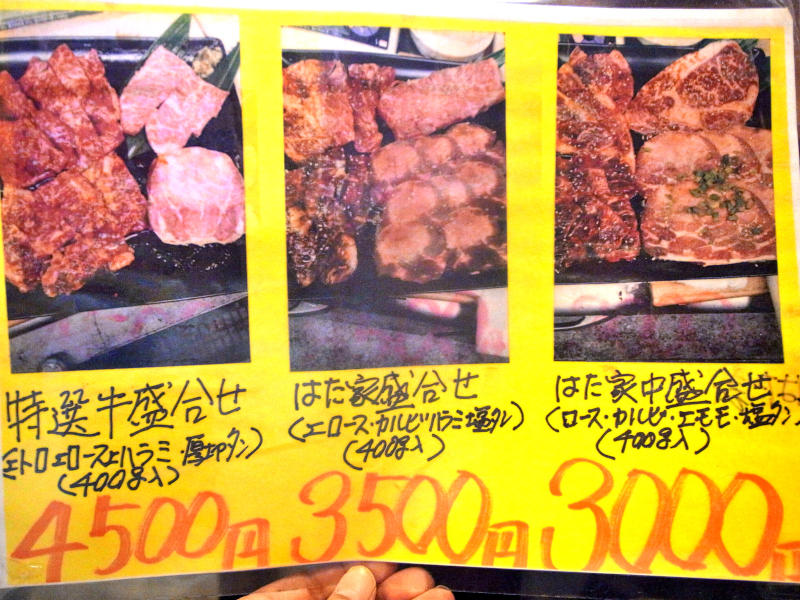 特選牛盛合せ
(上トロ上ロース上ハラミ・厚切タン)
(400g入)
4500円
はた家盛合せ
(上ロース・カルビ・ハラミ・塩タン)
(400g入)
3500円
はた家中盛合せ
(ロース・カルビ・上モモ・塩タン)
(400g入)
3000円